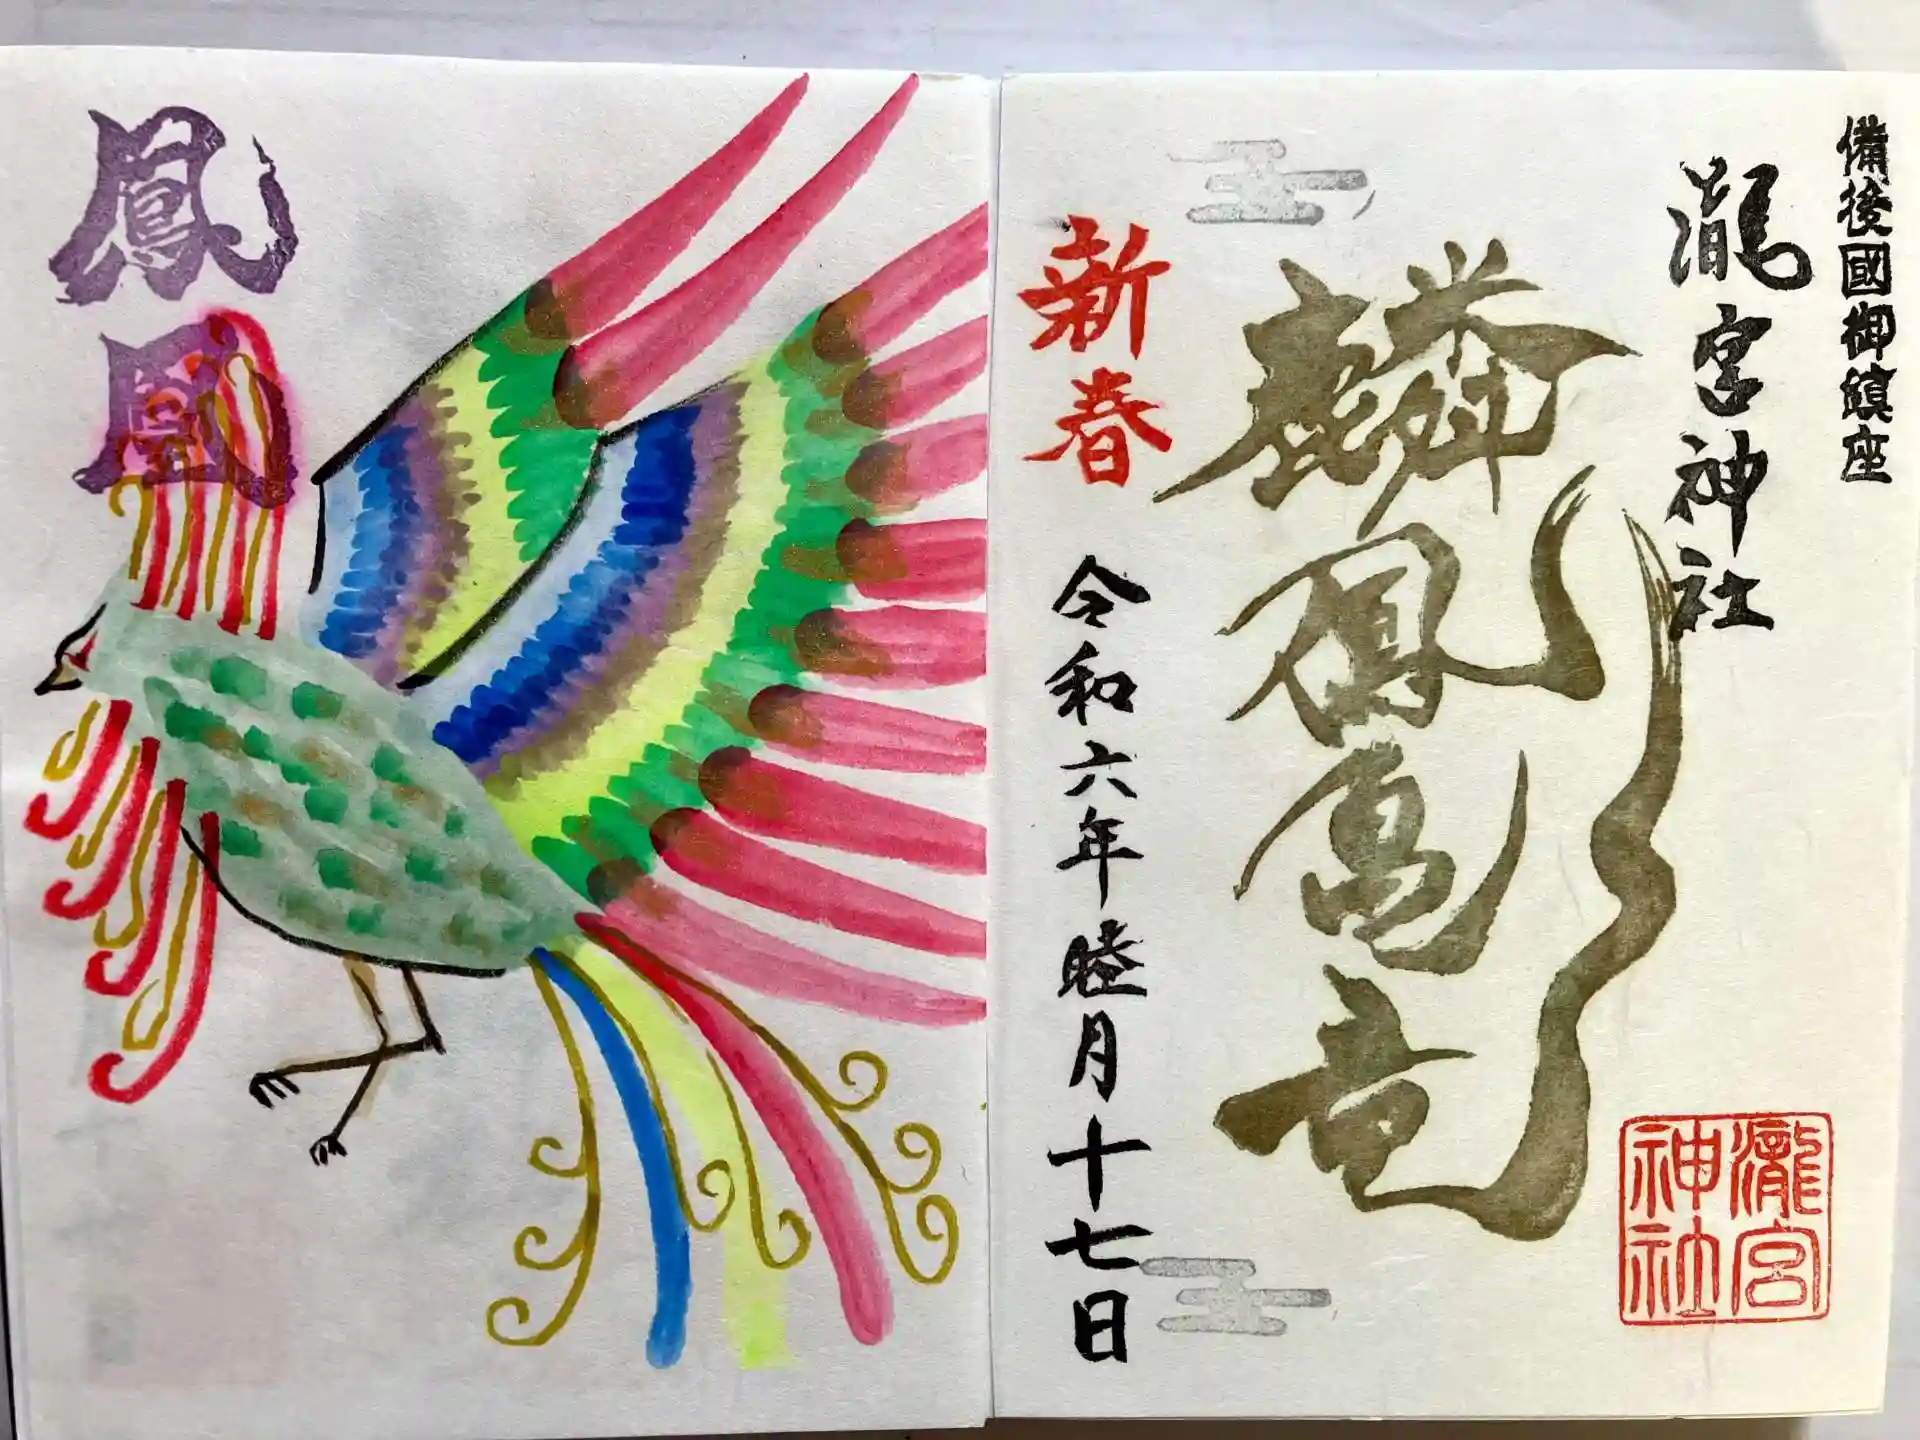 備後國御鎮座
瀧宮神社
麟鳳亀竜
瀧宮
神社
新春
令和六年睦月十七日
鳳凰